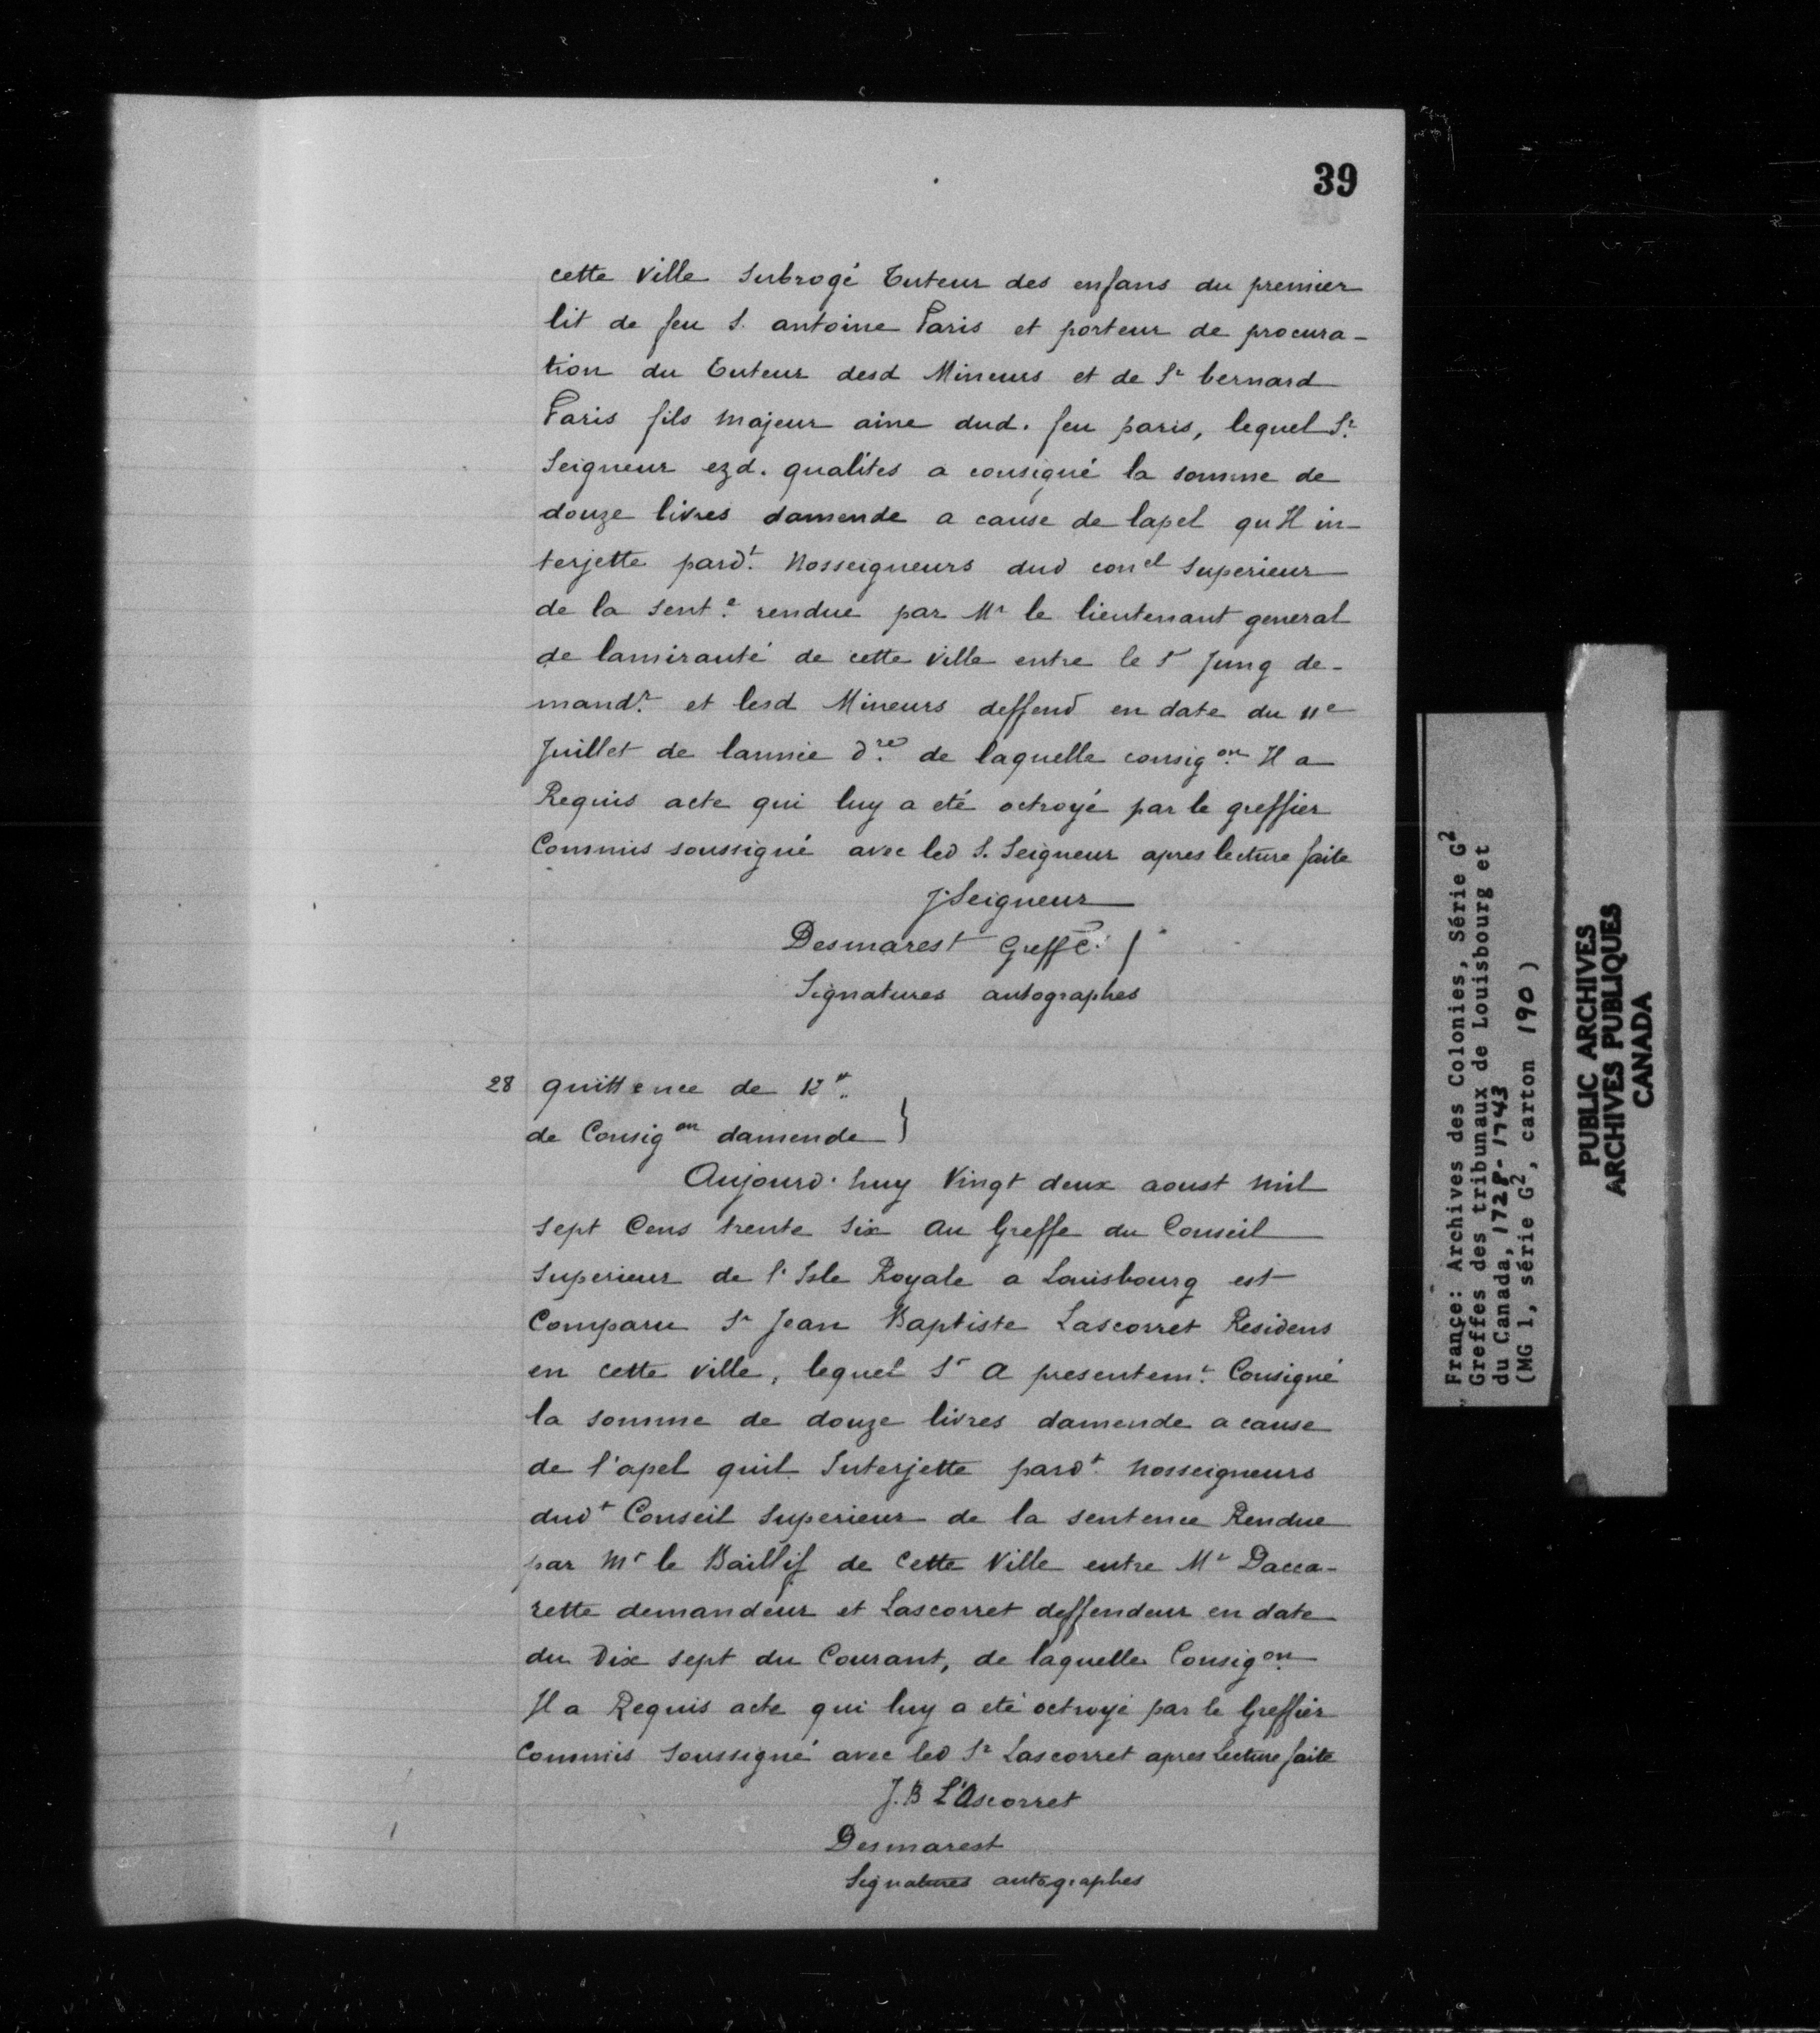 39
cette ville Subrogé Tuteur des enfans du premier
lit de feu S. antoine Paris et porteur de procura-
tion du Tuteur desd Mineurs et de Sr bernard
Paris fils majeur aine dud. feu paris, lequel Sr
Seigneur ezd. qualités a consigné la somme de
douze livres damende a cause de lapel qu Il in-
terjette pardt. Nosseigneurs dud conel Superieur
de la sente. rendue par Mr le lieutenant general
de lamirauté de cette ville entre le Sr Jung de-
mandr. et lesd Mineurs deffend en date du 11e
Juillet de lannée dre. de laquelle consigon. Il a
Requis acte qui luy a eté octroyé par le greffier
Commis soussigné avec led S. Seigneur apres lecture faite
J. Seigneur
Desmarest Greff C. }
Signatures autographes
28 quittence de 12tt.
de Consigon damende }
Aujourd. huy Vingt deux aoust mil
sept Cens trente six au Greffe du Conseil
Superieur de l'Isle Royale a Louisbourg est
Comparu Sr Jean Baptiste Lascorret Residens
en cette ville, lequel Sr a presentemt. Consigné
la somme de douze livres damende a cause
de l'apel quil Interjette pardt. nosseigneurs
dudt Conseil Superieur de la sentence Rendue
par Mr le Baillif de Cette Ville entre Mr Dacca-
rette demandeur et Lascorret deffendeur en date
du Dix sept du Courant, de laquelle Consigon.
Il a Requis acte qui luy a eté octroyé par le Greffier
Commis Soussigné avec led Sr Lascorret apres Lecture faite
J. B L'Ascorret
Desmarest
Signatures autographes
France: Archives des Colonies, Série G2
Greffes des tribunaux de Louisbourg et
du Canada, 1728-1743
(MG 1, série G2, carton 190)
PUBLIC ARCHIVES
ARCHIVES PUBLIQUES
CANADA